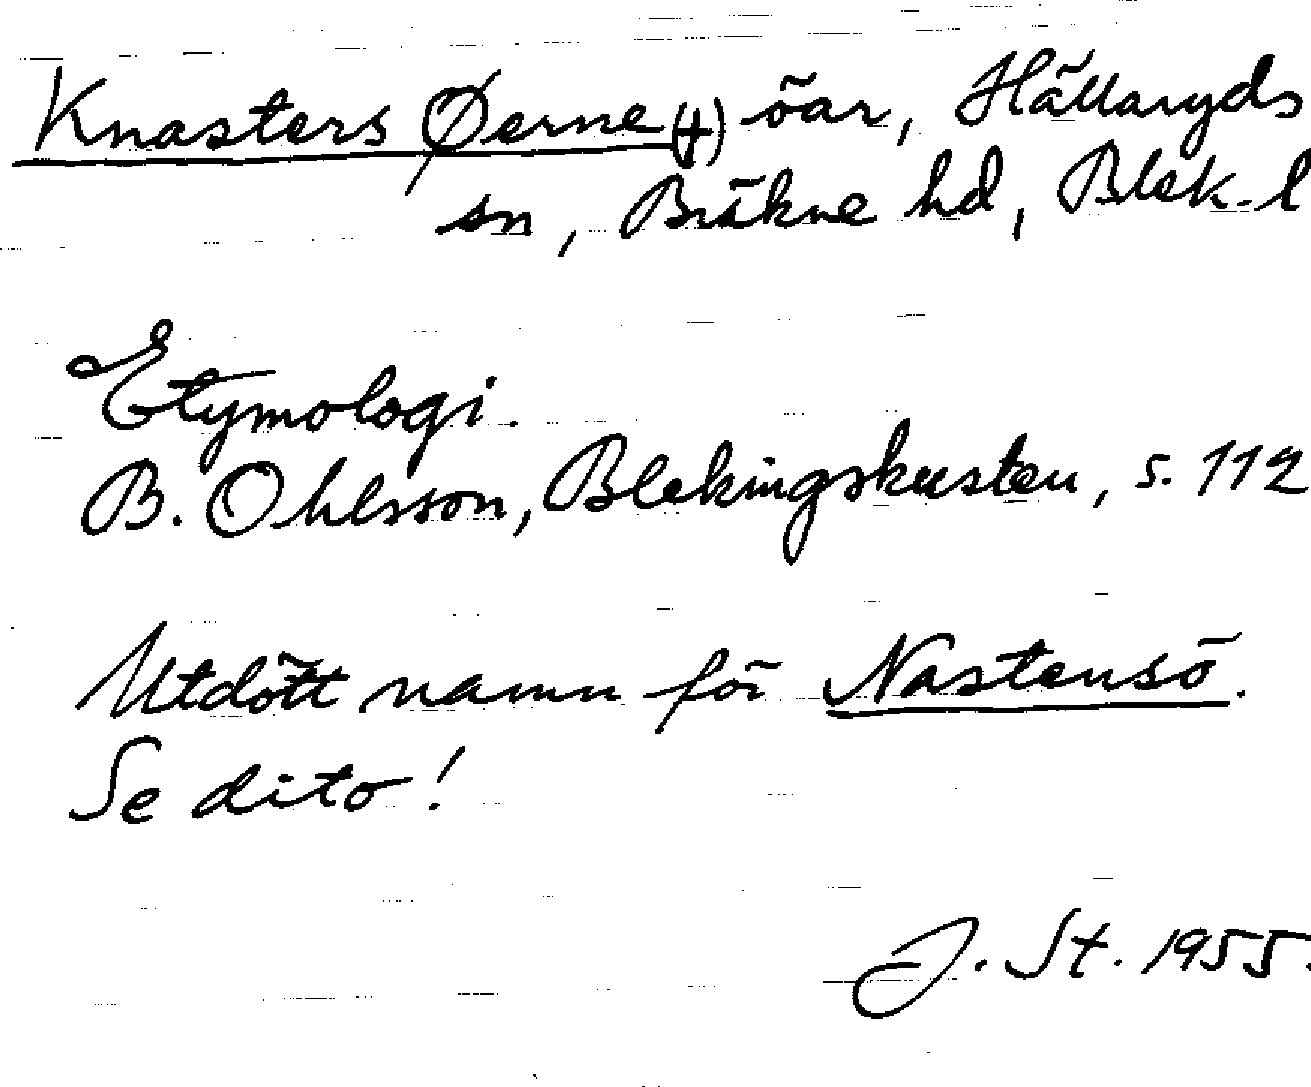 Knasters Øerne (†) öar, Hällaryds
sn, Bräkne hd, Blek. l
Etymologi.
B. Ohlsson, Blekingskusten, s. 112
Utdött namn för Nastensö.
Se dito!
J. St. 1955.